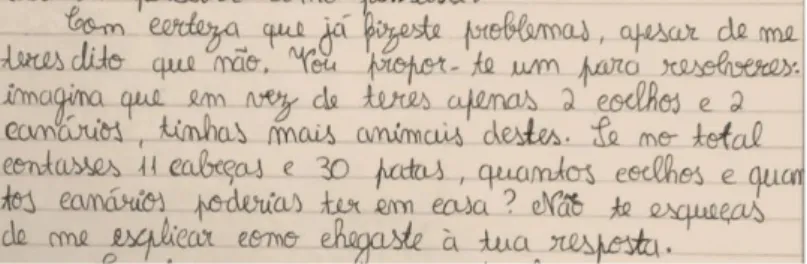 Com certeza que já fizeste problemas, apesar de me
teres dito que não. Vou propor-te um para resolveres:
imagina que em vez de teres apenas 2 coelhos e 2
canários, tinhas mais animais destes. Se no total
contasses 11 cabeças e 30 patas, quantos coelhos e quan
tos canários poderias ter em casa? Não te esqueças
de me explicar como chegaste à tua resposta.